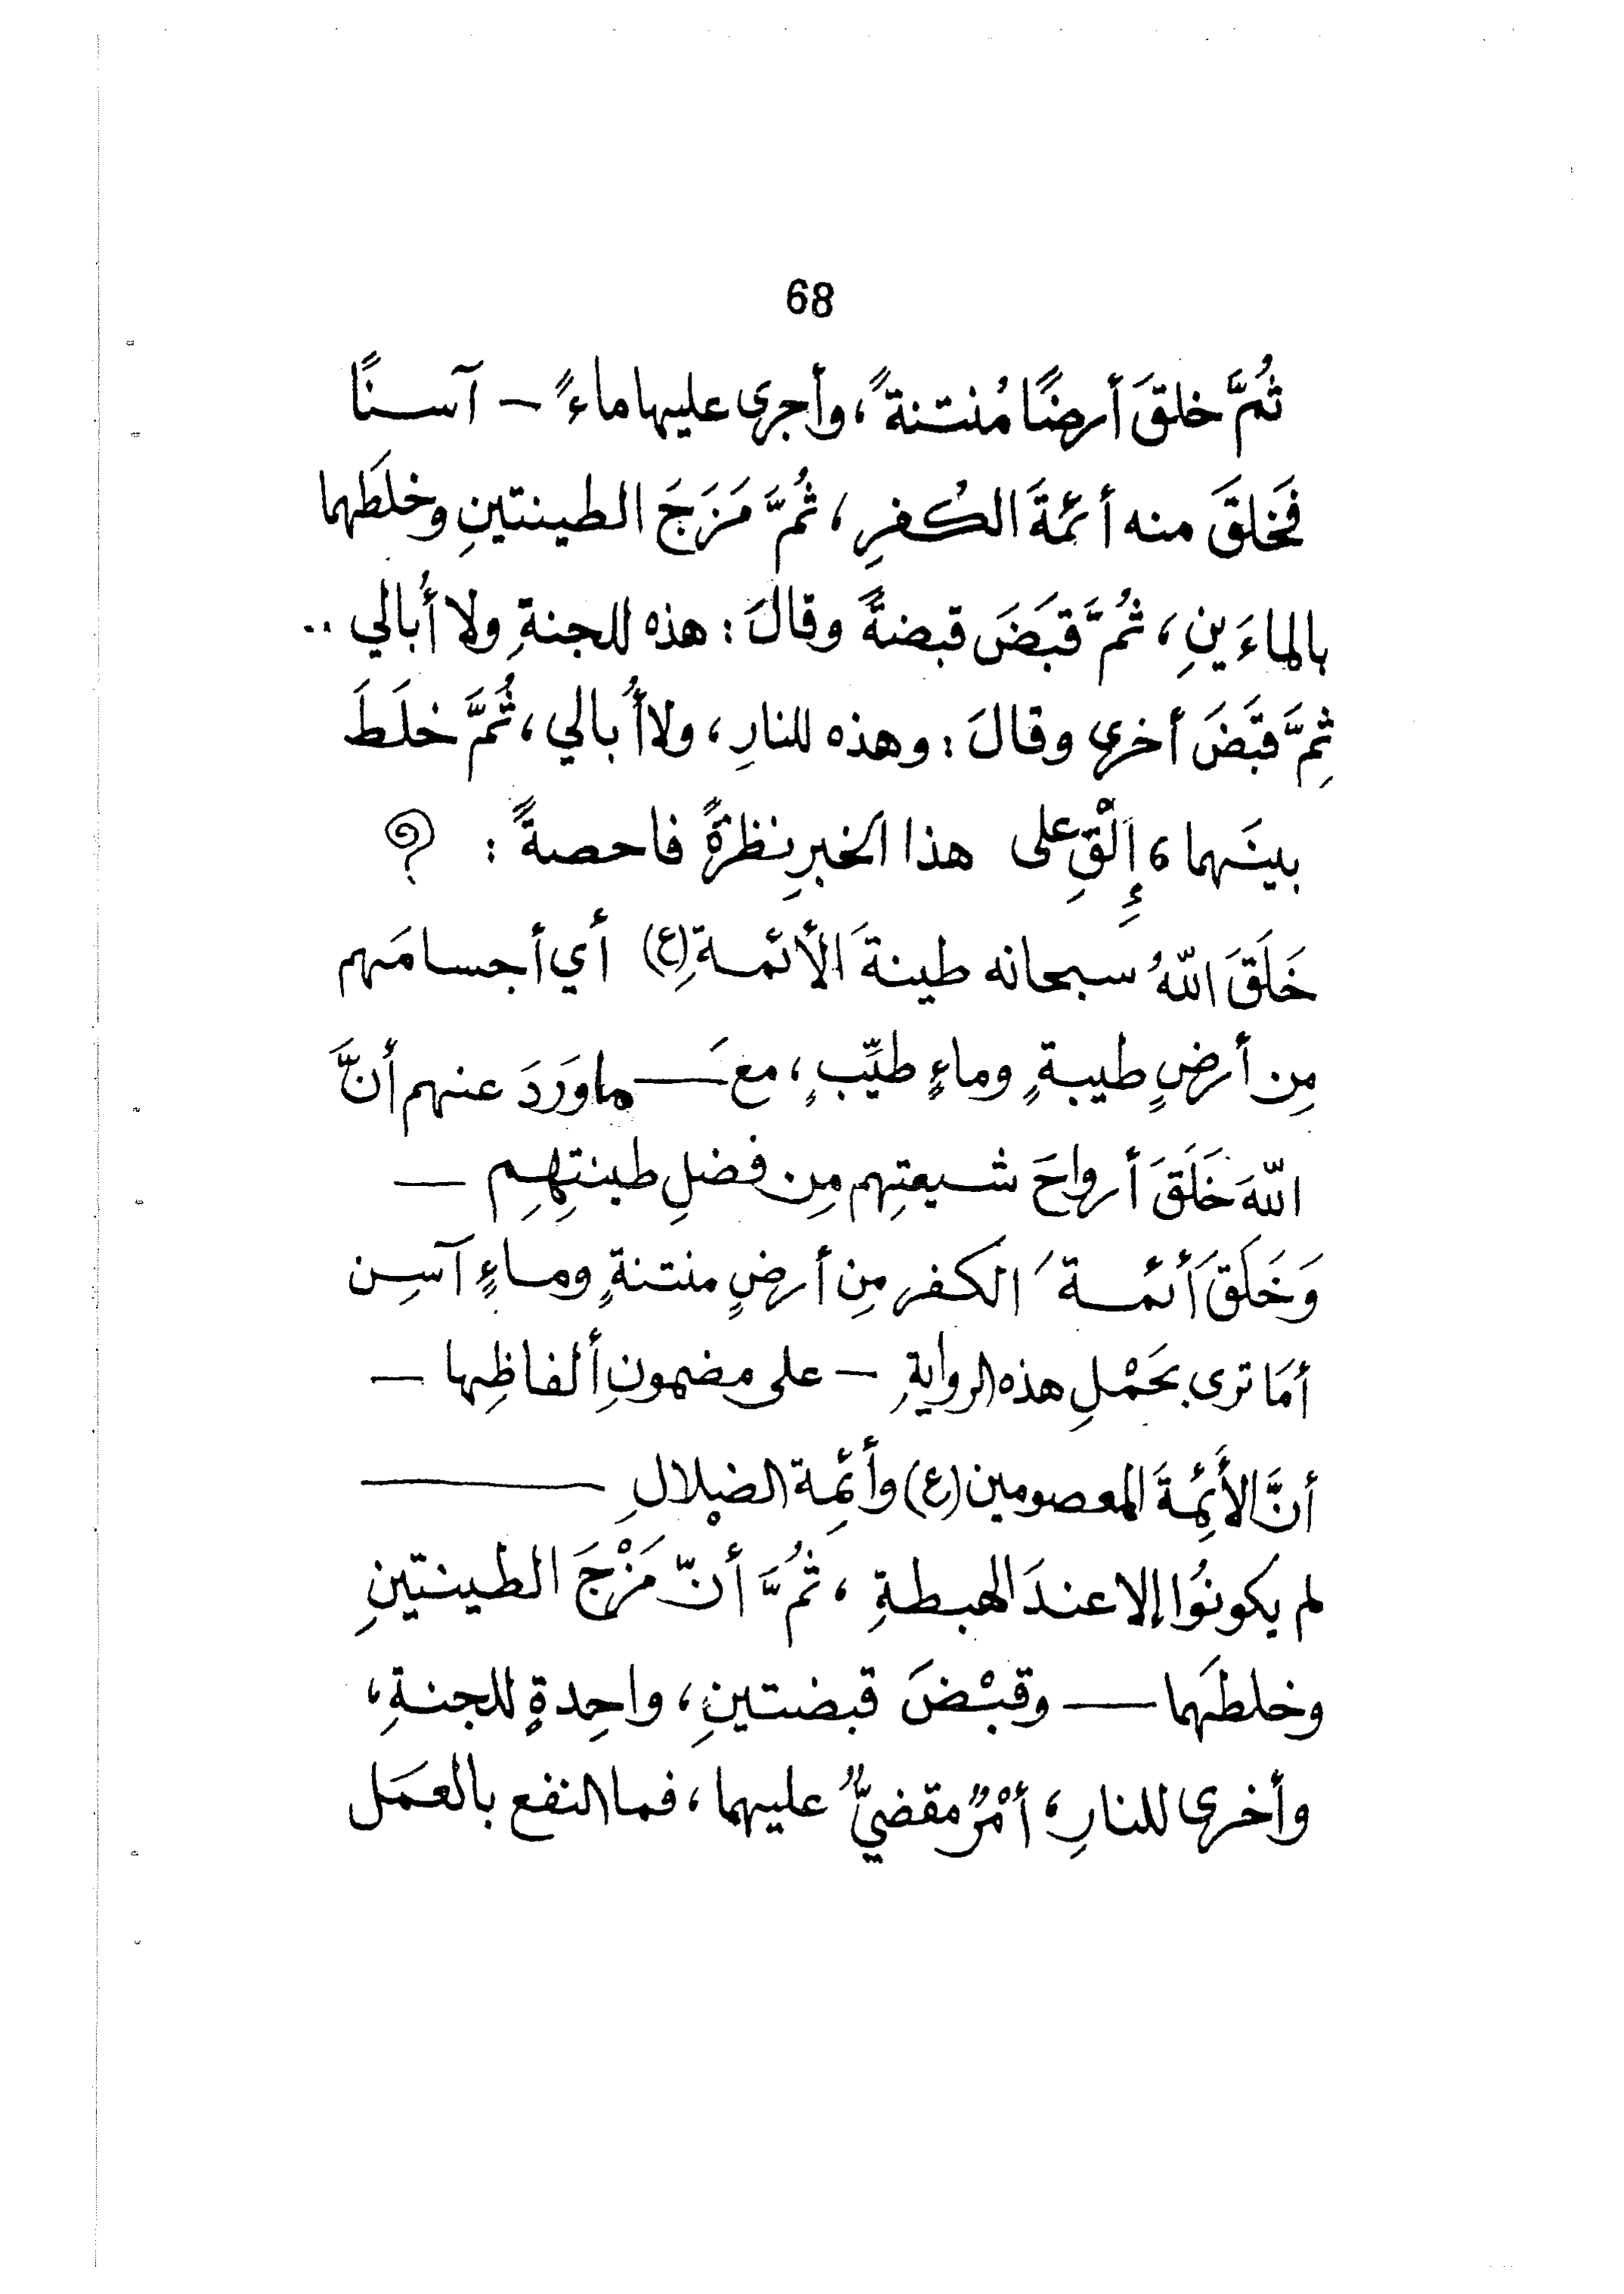 68
ثُمَّ خلقَ أرضًا مُنتنةً، وأجرى عليها ماءً – آسنًا
فَخلقَ منه أئمةَ الكُفرِ، ثُمَّ مَزَجَ الطينتينِ وخلطَهما
بالماءَينِ، ثُمَّ قبَضَ قبضةً وقالَ: هذه للجنةِ ولا أُبالي ..
ثِمَّ قبَضَ أخرى وقالَ: وهذه للنارِ، ولا أُبالي، ثُمَّ خلَطَ
بينَهما، إِلْقِ على هذا الخبرِ نظرةً فاحصةً :
خَلَقَ اللّهُ سبحانه طينةَ الأئمةِ (ع) أي أجسامَهم
مِن أرضٍ طيبةٍ وماءٍ طيِّبٍ، معَ ــ ما وَرَدَ عنهم أنَّ
اللّهَ خَلَقَ أرواحَ شيعتِهم مِن فضلِ طينتِهِم –
وَخَلَقَ أئمةَ الكفرِ مِن أرضٍ منتنةٍ وماءٍ آسِن
أمَا ترى بحَمْلِ هذه الروايةِ – على مضمونِ ألفاظِها –
أنَّ الأَئِمةَ المعصومين (ع) وأئِمة الضلالِ ــــ
لم يكونُوا إلا عندَ الهبطةِ، ثُمَّ أنّ مَزْجَ الطينتينِ
وخلطَهما ــ وقبْضَ قبضتينِ، واحِدةٍ للجنةِ،
وأخرى للنارِ، أمْرٌ مقضيٌّ عليهما، فما النفع بالعمَل